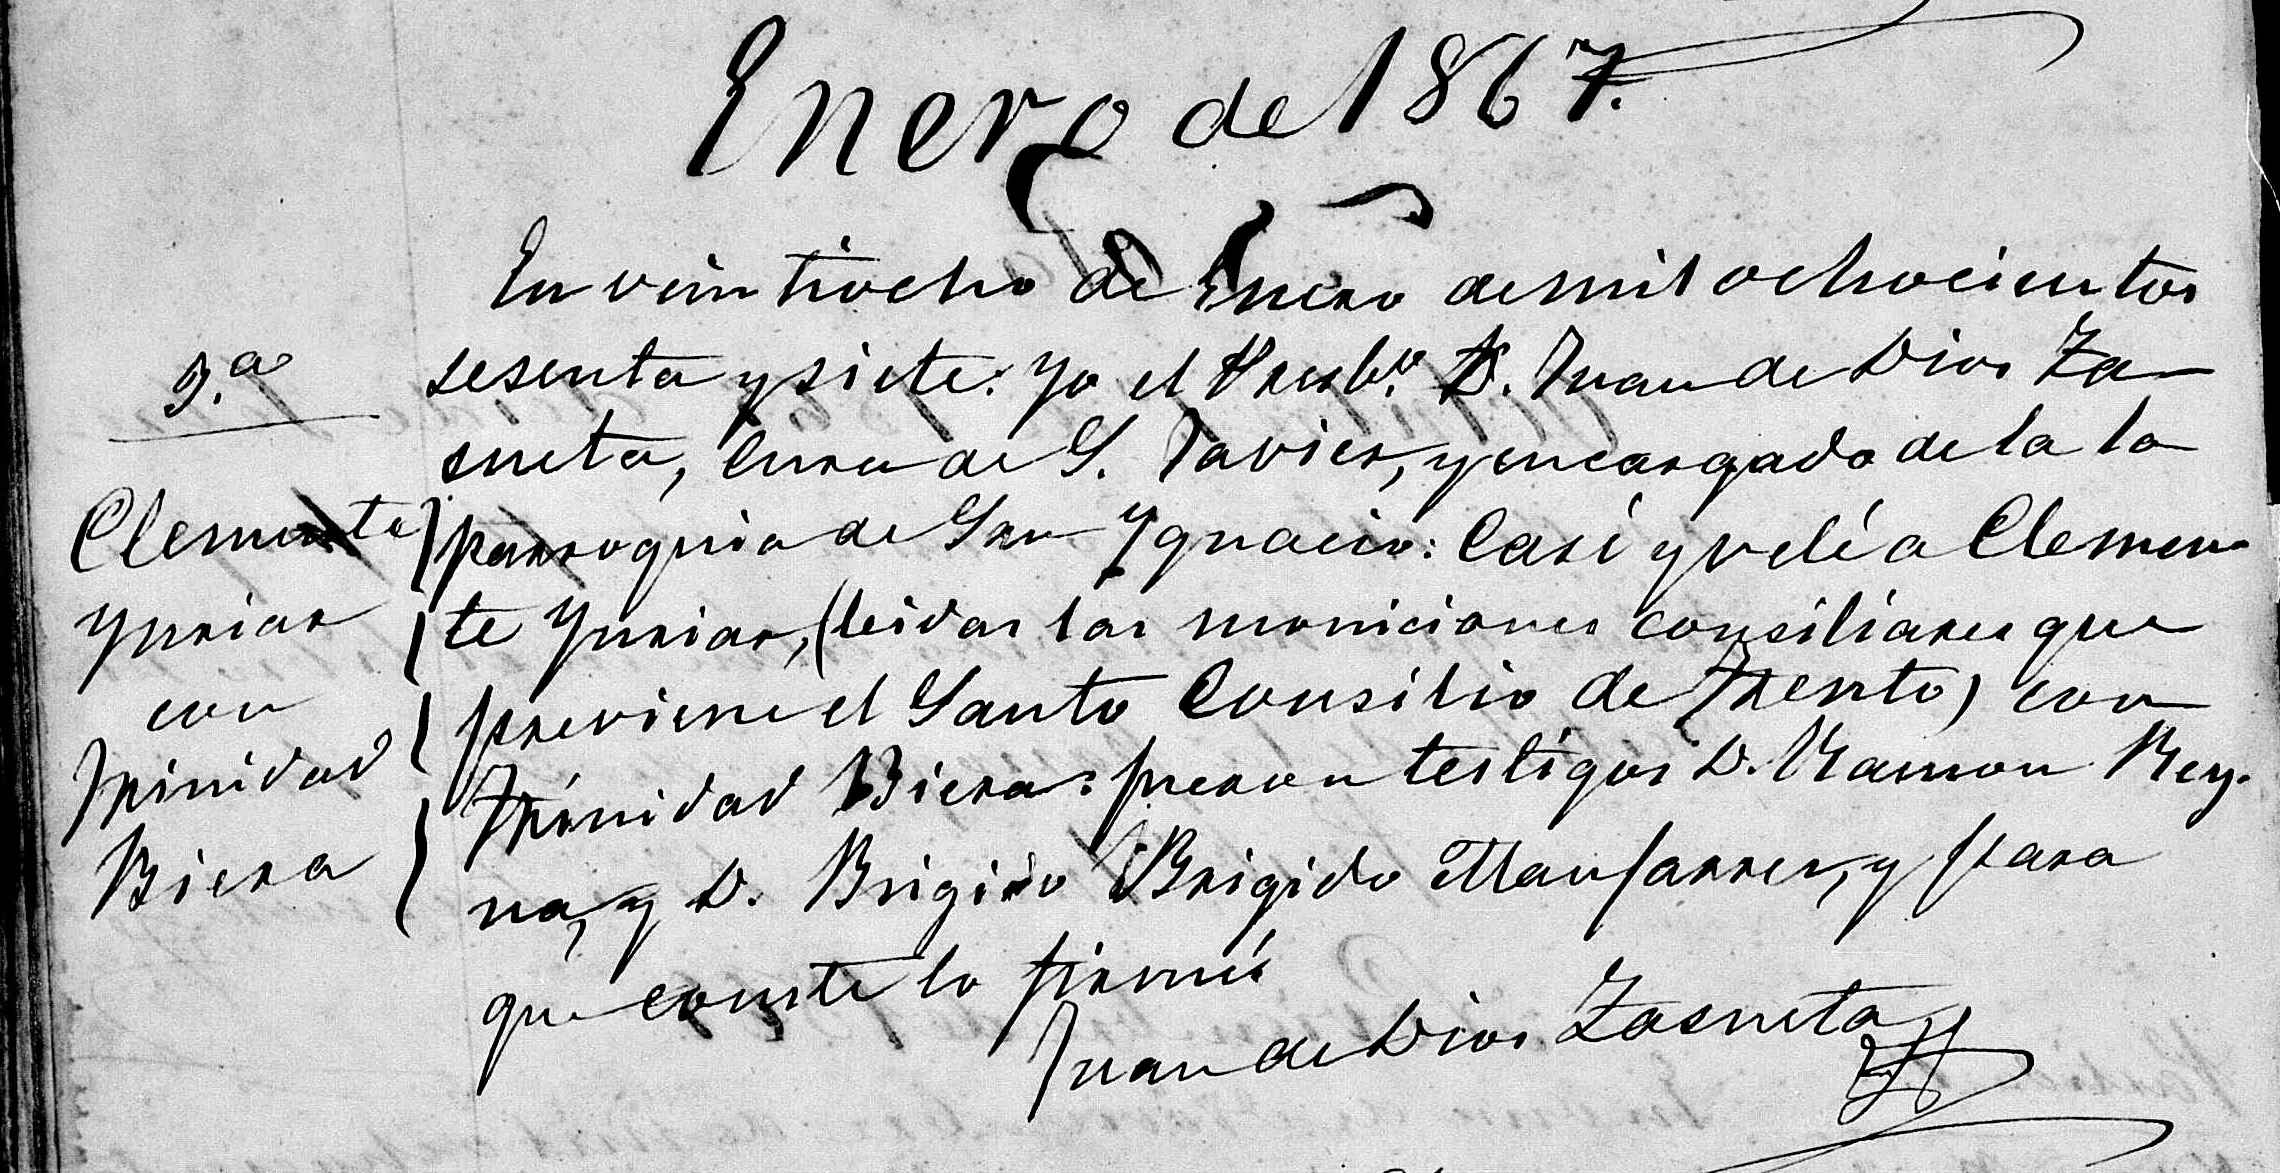 Enero de 1867.
En veintiocho de Enero de mil ochocientos
3.a
sesenta y siete. Yo el Presb.o D. Juan de Dios Za-
sueta, Cura de S. Javier, y encargado de la la
Clemente
parroquia de San Ygnacio: Casé y velé a Clemen-
Yuriar
te Yuriar, (leidas las moniciones consiliares que
con
previene el Santo Consilio de Trento) con
Trinidad
Trinidad Biera: fueron testigos D. Ramon Rey-
Biera
na, y D. Brigido Brigido Manjarres, y para
que conste lo firmé
Juan de Dios Zasueta